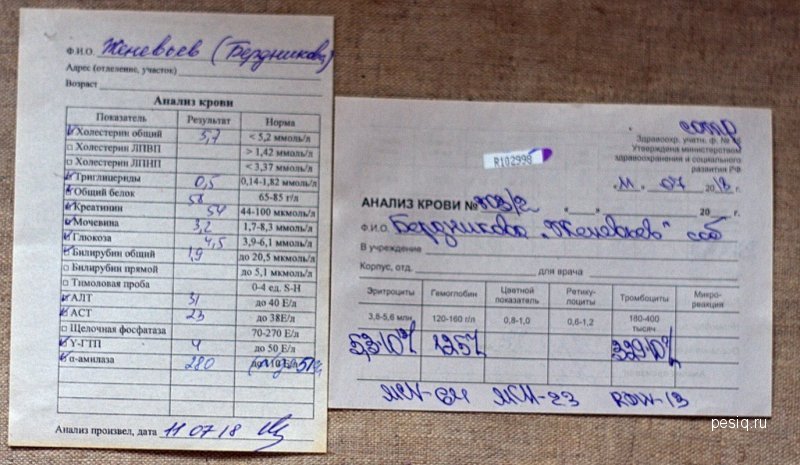 Ф.И.О. Женевьев (Бердникова)
Адрес (отделение, участок)
Возраст
Анализ крови
Показатель Результат Норма
Холестерин общий 3,7 < 5,2 ммоль/л
Холестерин ЛПВП > 1,42 ммоль/л
Холестерин ЛПНП < 3,37 ммоль/л
Триглицериды 0,5 0,14-1,82 ммоль/л
Общий белок 58 65-85 г/л
Креатинин 54 44-100 мкмоль/л
Мочевина 3,2 1,7-8,3 ммоль/л
Глюкоза 4,5 3,9-6,1 ммоль/л
Билирубин общий 1,9 до 20,5 мкмоль/л
Билирубин прямой до 5,1 мкмоль/л
Тимоловая проба 0-4 ед. S-H
АЛТ 31 до 40 Е/л
АСТ 23 до 38Е/л
Щелочная фосфатаза 70-270 Е/л
Y-ГТП 4 до 50 Е/л
α-амилаза 280
Анализ произвел, дата 11 07 18
R102998
Здравоохр. учетн. ф. №
Утверждена министерством
здравоохранения и социального
развития РФ
« 11 » 07 20 18 г.
АНАЛИЗ КРОВИ № « » 20 г.
Ф.И.О. Бердникова "Женевьев" соб
В учреждение
Корпус, отд. для врача
Эритроциты Гемоглобин Цветной показатель Ретику-лоциты Тромбоциты Микро-реакция
3,8-5,6 млн. 120-160 г/л 0,8-1,0 0,6-1,2 180-400 тысяч.
MCV-64 MCH-23 RDW-13
pesiq.ru